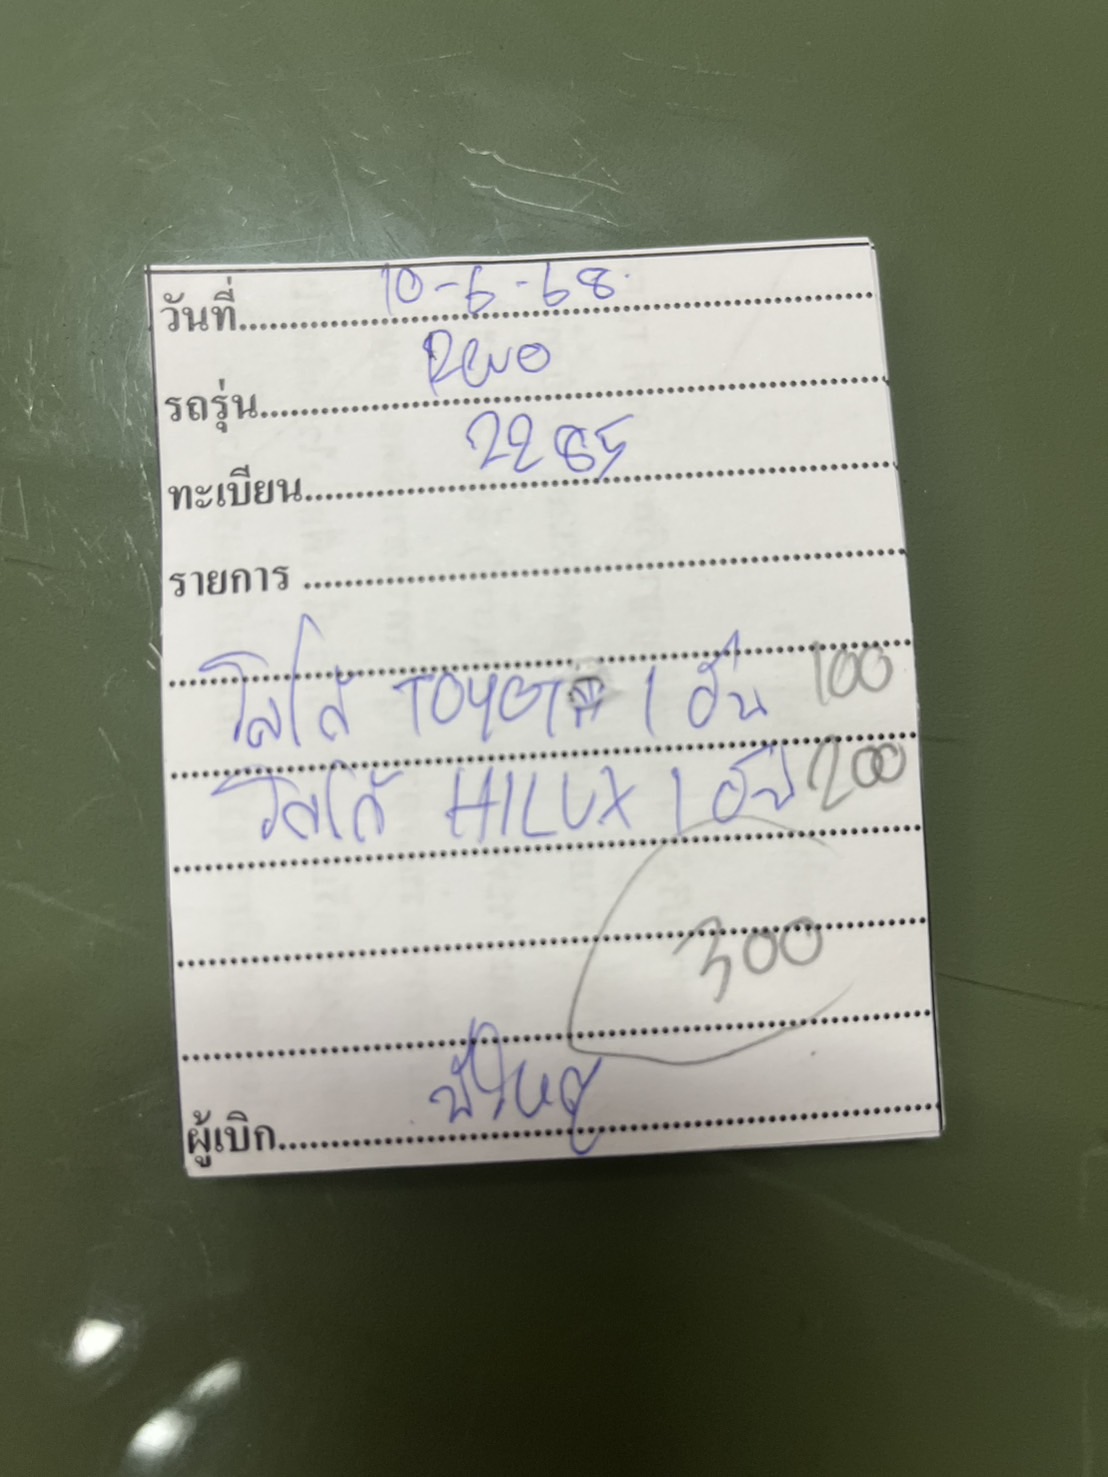 วันที่ 10-6-68
รถรุ่น Revo
ทะเบียน 2285
รายการ
โลโก้ TOYOTA 1 อัน 100
โลโก้ HILUX 1 อัน 200
300
ผู้เบิก